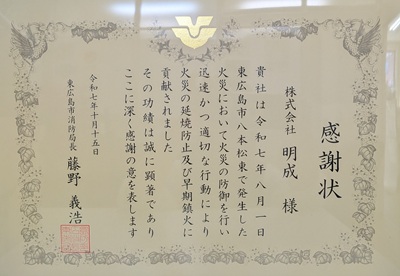 感謝状
株式会社 明成 様
貴社は令和七年八月一日
東広島市八本松東で発生した
火災において火災の防御を行い
迅速かつ適切な行動により
火災の延焼防止及び早期鎮火に
貢献されました
その功績は誠に顕著であり
ここに深く感謝の意を表します
令和七年十月十五日
東広島市消防局長 藤野 義浩